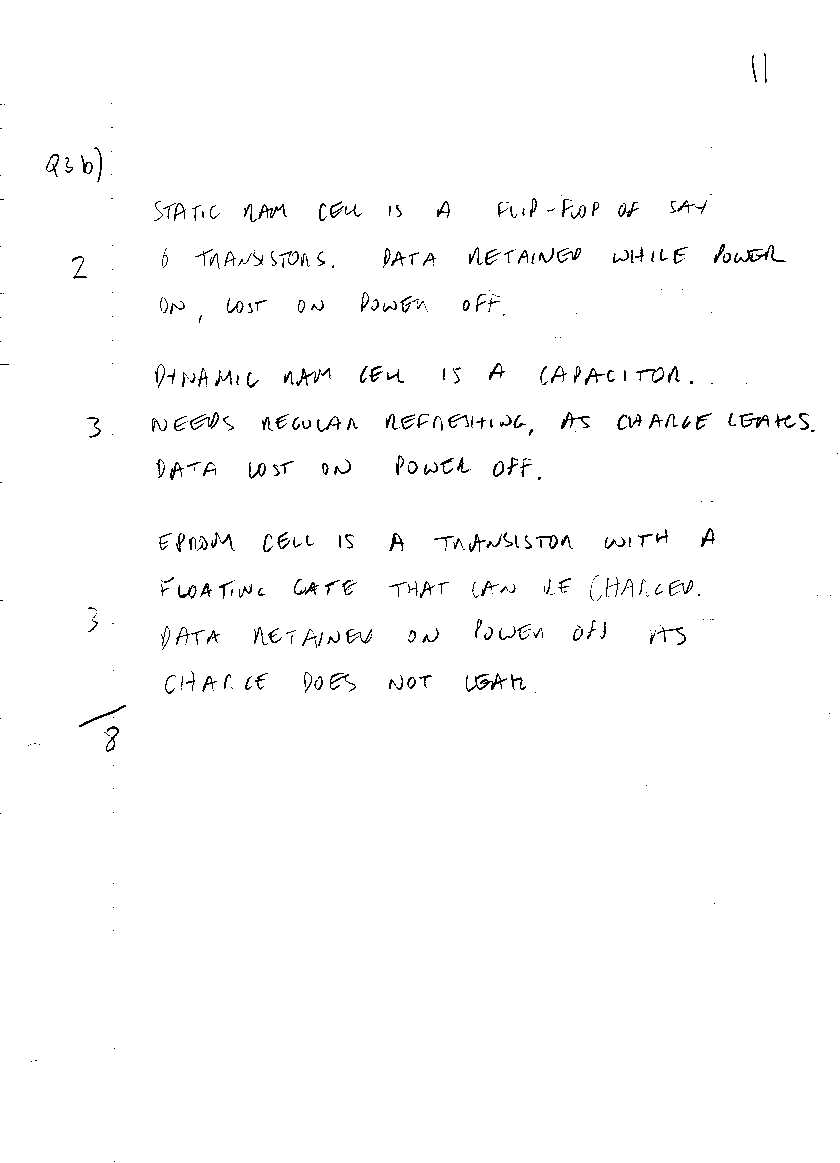 11
Q3 b)
STATIC RAM CELL IS A FLIP-FLOP OF SAY
2 6 TRANSISTORS. DATA RETAINED WHILE POWER
ON, LOST ON POWER OFF.
DYNAMIC RAM CELL IS A CAPACITOR.
3 NEEDS REGULAR REFRESHING, AS CHARGE LEAKS.
DATA LOST ON POWER OFF.
EPROM CELL IS A TRANSISTOR WITH A
FLOATING GATE THAT CAN BE CHARGED.
3 DATA RETAINED ON POWER OFF AS
CHARGE DOES NOT LEAK.
/8